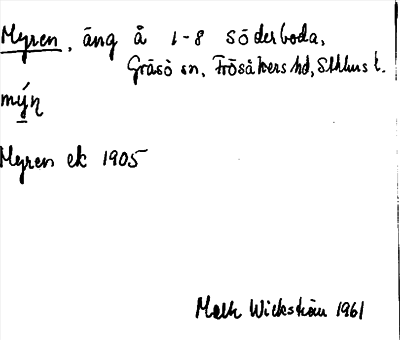 Myren, äng å 1-8 Söderboda,
Gräsö sn, Frösåkers hd, Sthlms l.
mýṇ
Myren ek 1905
Wickström 1961